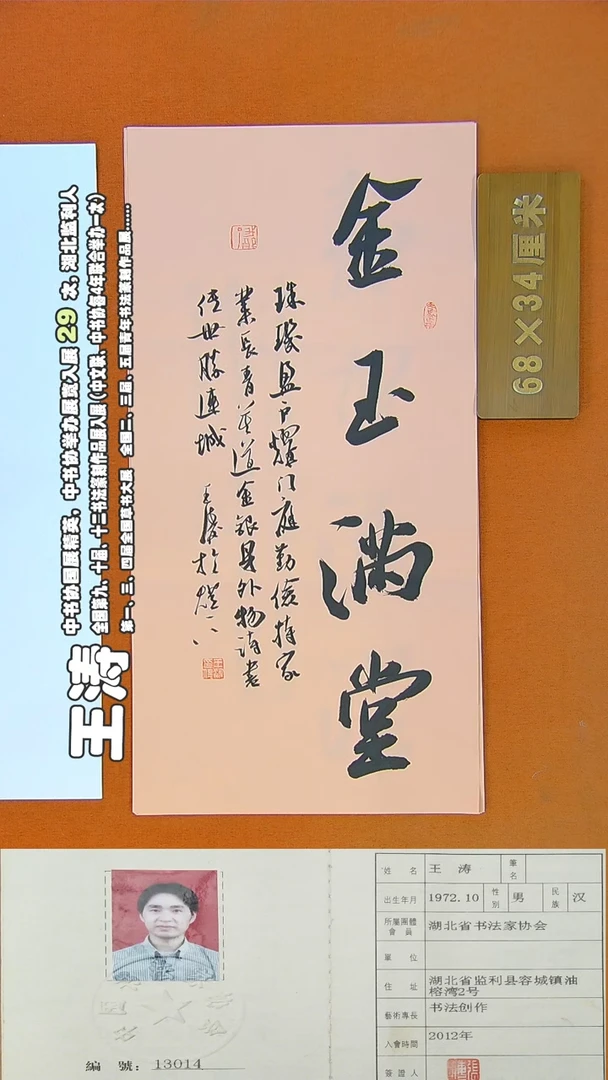 金玉满堂
珠璣盈户耀门庭勤俭持家
業長青莫道金银身外物诗書
传世胜连城 王涛於
68×34厘米
王涛
中书协国展精英、中书协举办展赛入展 29 次，湖北监利人
全国第九、十届、十二书法篆刻作品展入展（中文联、中书协每4年联合举办一次）
第一、三、四届全国草书大展 全国二、三届、五届青年书法篆刻作品展......
姓 名 王 涛 筆名
出生年月 1972.10 性別 男 民族 汉
所屬團體會員 湖北省书法家协会
單 位
住 址 湖北省监利县容城镇油榕湾2号
藝術專長 书法创作
入會時間 2012年
簽證人
編 號: 13014